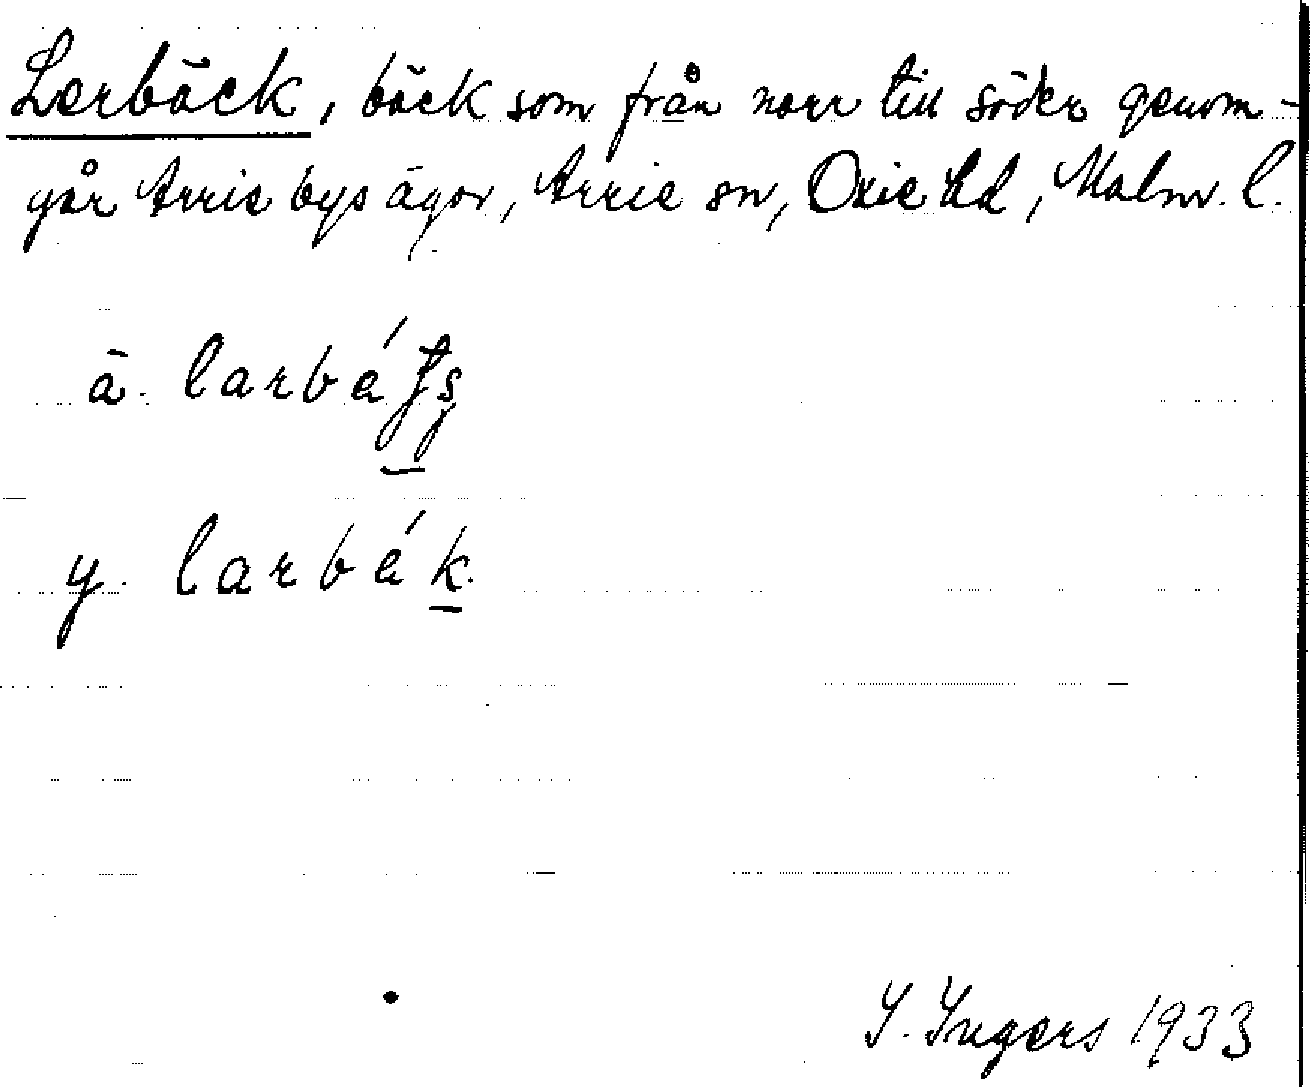 Lerbäck, bäck som från norr till söder genom-
går Arrie bys ägor, Arrie sn, Oxie hd, Malm. l.
ä. larbá
y. larbák.
I. Ingers 1933